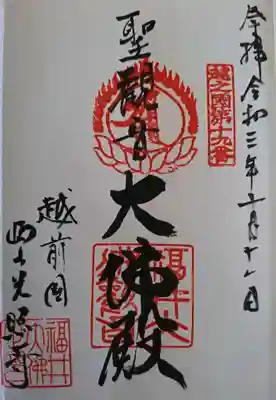 奉拝 令和三年十月十一日
越之國第十九番
聖観音
大佛殿
越前国
西山光照寺
福井大佛